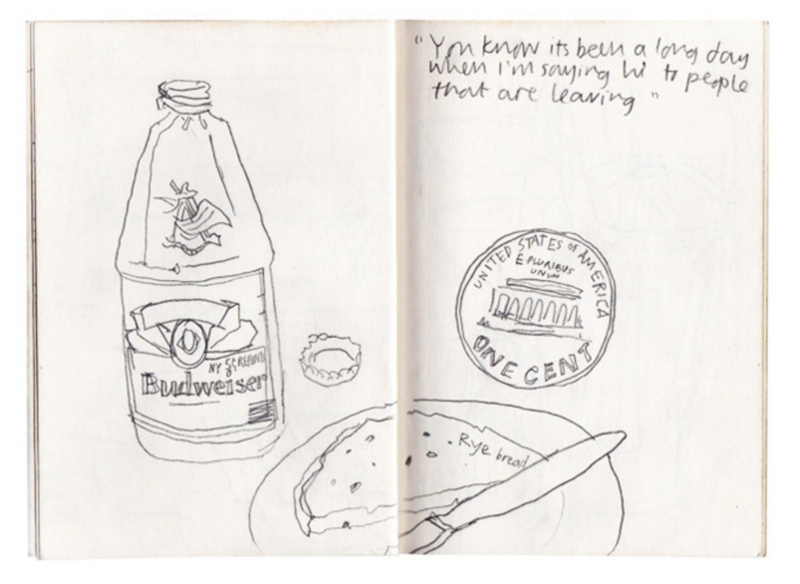 "You know its been a long day
when I'm saying hi to people
that are leaving"
UNITED STATES OF AMERICA
E.PLURIBUS
UNUM
ONE CENT
NY
Budweiser
Rye bread